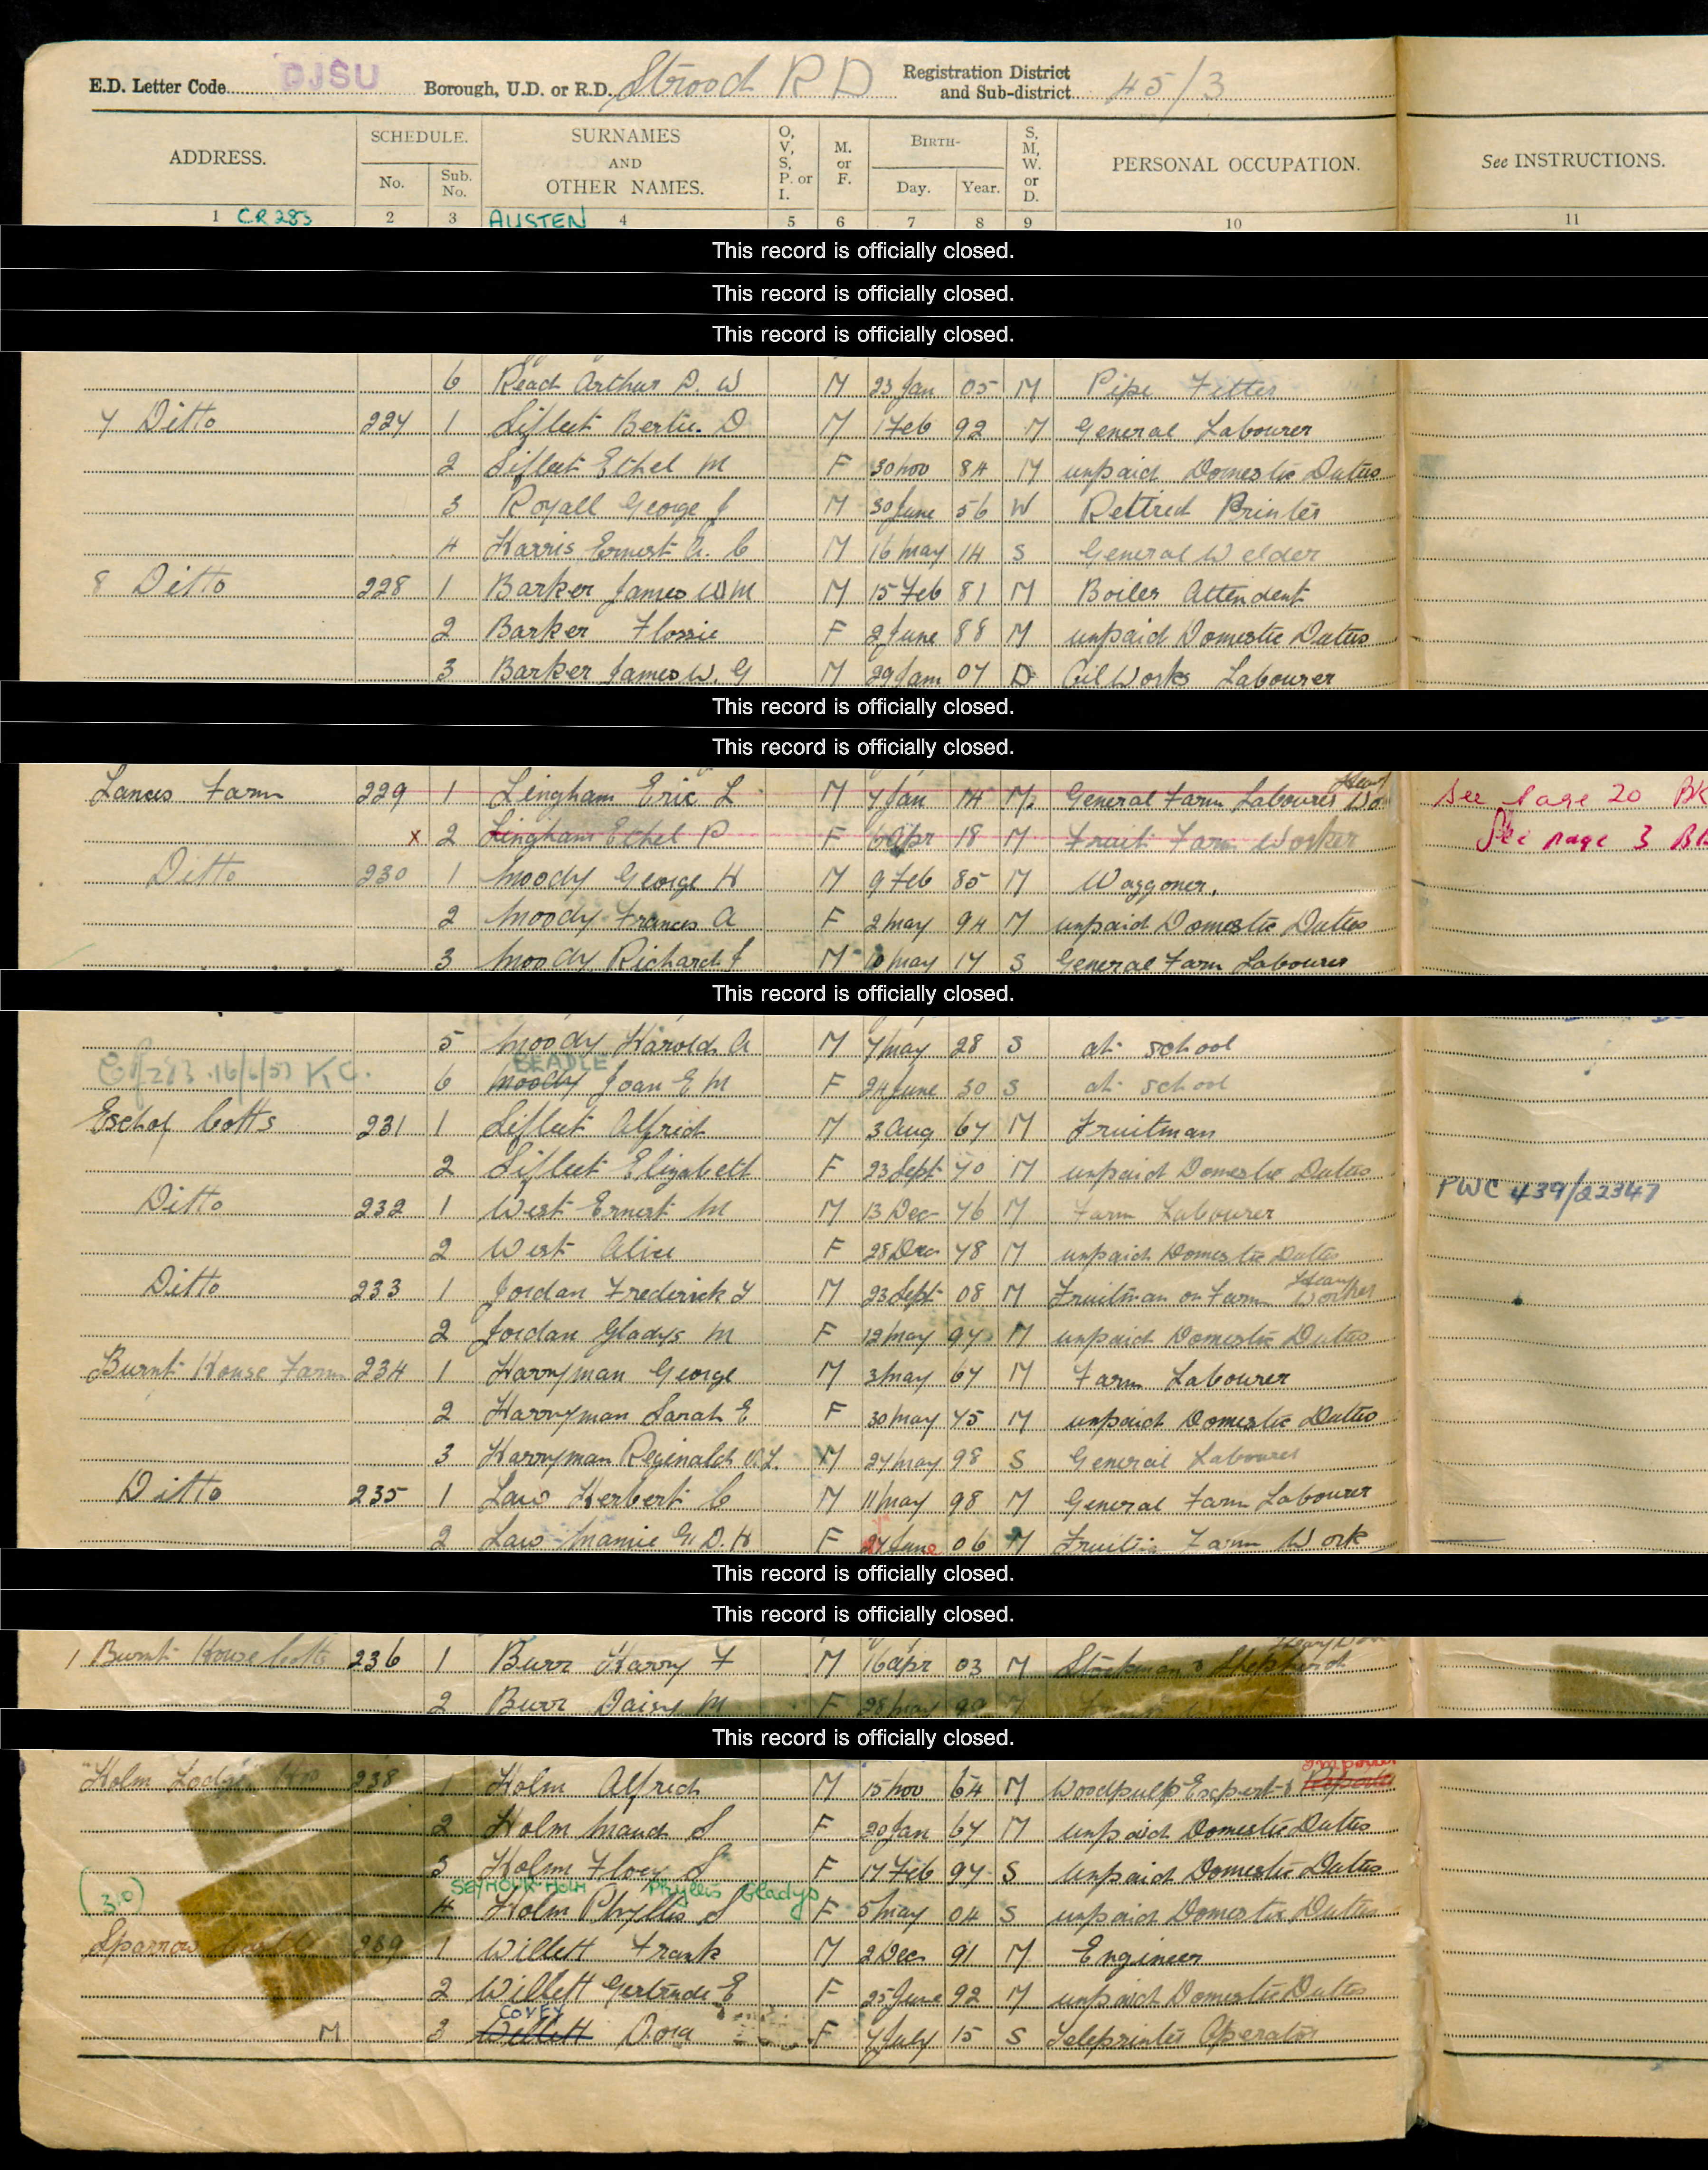 E.D. Letter Code DJSU Borough, U.D. or R.D. Strood R D Registration District and Sub-district 45/3
ADDRESS. SCHEDULE. No. Sub. No. SURNAMES AND OTHER NAMES. O, V, S, P. or I. M. or F. BIRTH- Day. Year. S, M, W. or D. PERSONAL OCCUPATION. See INSTRUCTIONS.
1 CR 283 2 3 AUSTEN 4 5 6 7 8 9 10 11
This record is officially closed.
This record is officially closed.
This record is officially closed.
6 Read Arthur D. W M 23 Jan 05 M Pipe Fitter
7 Ditto 227 1 Sifleet Bertie D M 1 Feb 92 M General Labourer
2 Sifleet Ethel M F 30 Nov 84 M unpaid Domestic Duties
3 Royall George J M 30 June 56 W Retired Printer
4 Harris Ernest A. C M 16 May 14 S General Welder
8 Ditto 228 1 Barker James W M M 15 Feb 81 M Boiler Attendent
2 Barker Flossie F 2 June 88 M unpaid Domestic Duties
3 Barker James W. G M 29 Jan 07 D Oil Works Labourer
This record is officially closed.
This record is officially closed.
Lances Farm 229 1 Lingham Eric L M 7 Jan 14 M General Farm Labourer Heavy See page 20 BK
x 2 Lingham Ethel P F 6 Apr 18 M Fruit Farm Worker See page 3 BK
Ditto 230 1 Moody George H M 9 Feb 85 M Waggoner.
2 Moody Frances A F 2 May 94 M unpaid Domestic Duties
3 Moody Richard J M 10 May 17 S General Farm Labourer
This record is officially closed.
5 Moody Harold A M 7 May 28 S at school
BEADLE
16/6/53 K.C. 6 Moody Joan E M F 24 June 30 S at school
Eschol Cotts 231 1 Sifleet Alfred M 3 Aug 67 M Fruitman
2 Sifleet Elizabeth F 23 Sept 70 M unpaid Domestic Duties
PWC 439/22347
Ditto 232 1 West Ernest M M 13 Dec 76 M Farm Labourer
2 West Alice F 28 Dec 78 M unpaid Domestic Duties
Ditto 233 1 Jordan Frederick T M 23 Sept 08 M Fruitman on Farm Heavy Worker
2 Jordan Gladys M F 12 May 97 M unpaid Domestic Duties
Burnt House Farm 234 1 Harryman George M 3 May 67 M Farm Labourer
2 Harryman Sarah E F 30 May 75 M unpaid Domestic Duties
3 Harryman Reginald M 24 May 98 S General Labourer
Ditto 235 1 Law Herbert C M 11 May 98 M General Farm Labourer
2 Law Mamie G. D. H F 27 June 06 M Fruit Farm Work
This record is officially closed.
This record is officially closed.
1 Burnt House Cotts 236 1 Burr Harry F M 16 Apr 03 M Stockman & Shepherd
2 Burr Daisy M F 28 May
This record is officially closed.
Holm Lodge 238 1 Holm Alfred M 15 Nov 64 M Woodpulp Expert &
2 Holm Maud S F 20 Jan 67 M unpaid Domestic Duties
3 Holm Floey S F 17 Feb 97 S unpaid Domestic Duties
SEYMOUR-HOLM Phyllis Gladys
(310) 4 Holm Phyllis S F 5 May 04 S unpaid Domestic Duties
Sparrow 239 1 Willett Frank M 2 Dec 91 M Engineer
2 Willett Gertrude E F 25 June 92 M unpaid Domestic Duties
COVEY
M 3 Willett Dora F 7 July 15 S Teleprinter Operator